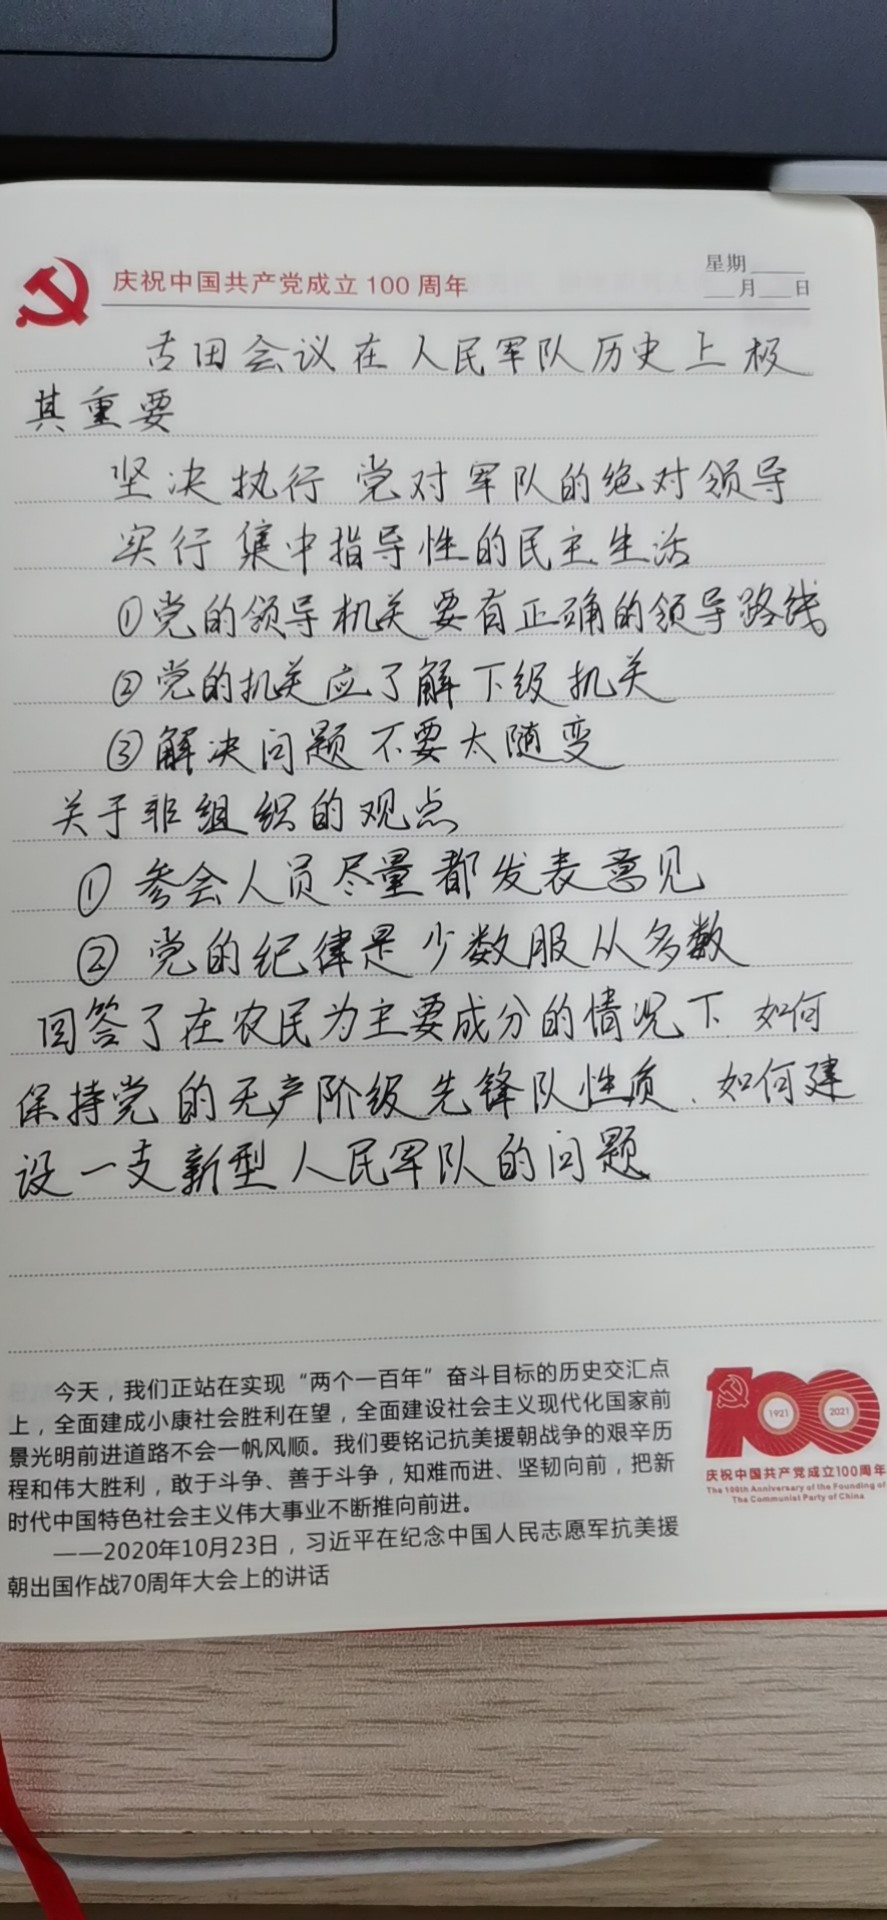 庆祝中国共产党成立 100 周年
星期____
___月___日
古田会议在人民军队历史上极
其重要
坚决执行党对军队的绝对领导
实行集中指导性的民主生活
①党的领导机关要有正确的领导路线
②党的机关应了解下级机关
③解决问题不要太随变
关于非组织的观点
①参会人员尽量都发表意见
②党的纪律是少数服从多数
回答了在农民为主要成分的情况下 如何
保持党的无产阶级先锋队性质、如何建
设一支新型人民军队的问题
今天，我们正站在实现“两个一百年”奋斗目标的历史交汇点
上，全面建成小康社会胜利在望，全面建设社会主义现代化国家前
景光明前进道路不会一帆风顺。我们要铭记抗美援朝战争的艰辛历
程和伟大胜利，敢于斗争、善于斗争，知难而进、坚韧向前，把新
时代中国特色社会主义伟大事业不断推向前进。
——2020年10月23日，习近平在纪念中国人民志愿军抗美援
朝出国作战70周年大会上的讲话
100
1921
2021
庆祝中国共产党成立100周年
The 100th Anniversary of the Founding of
The Communist Party of China